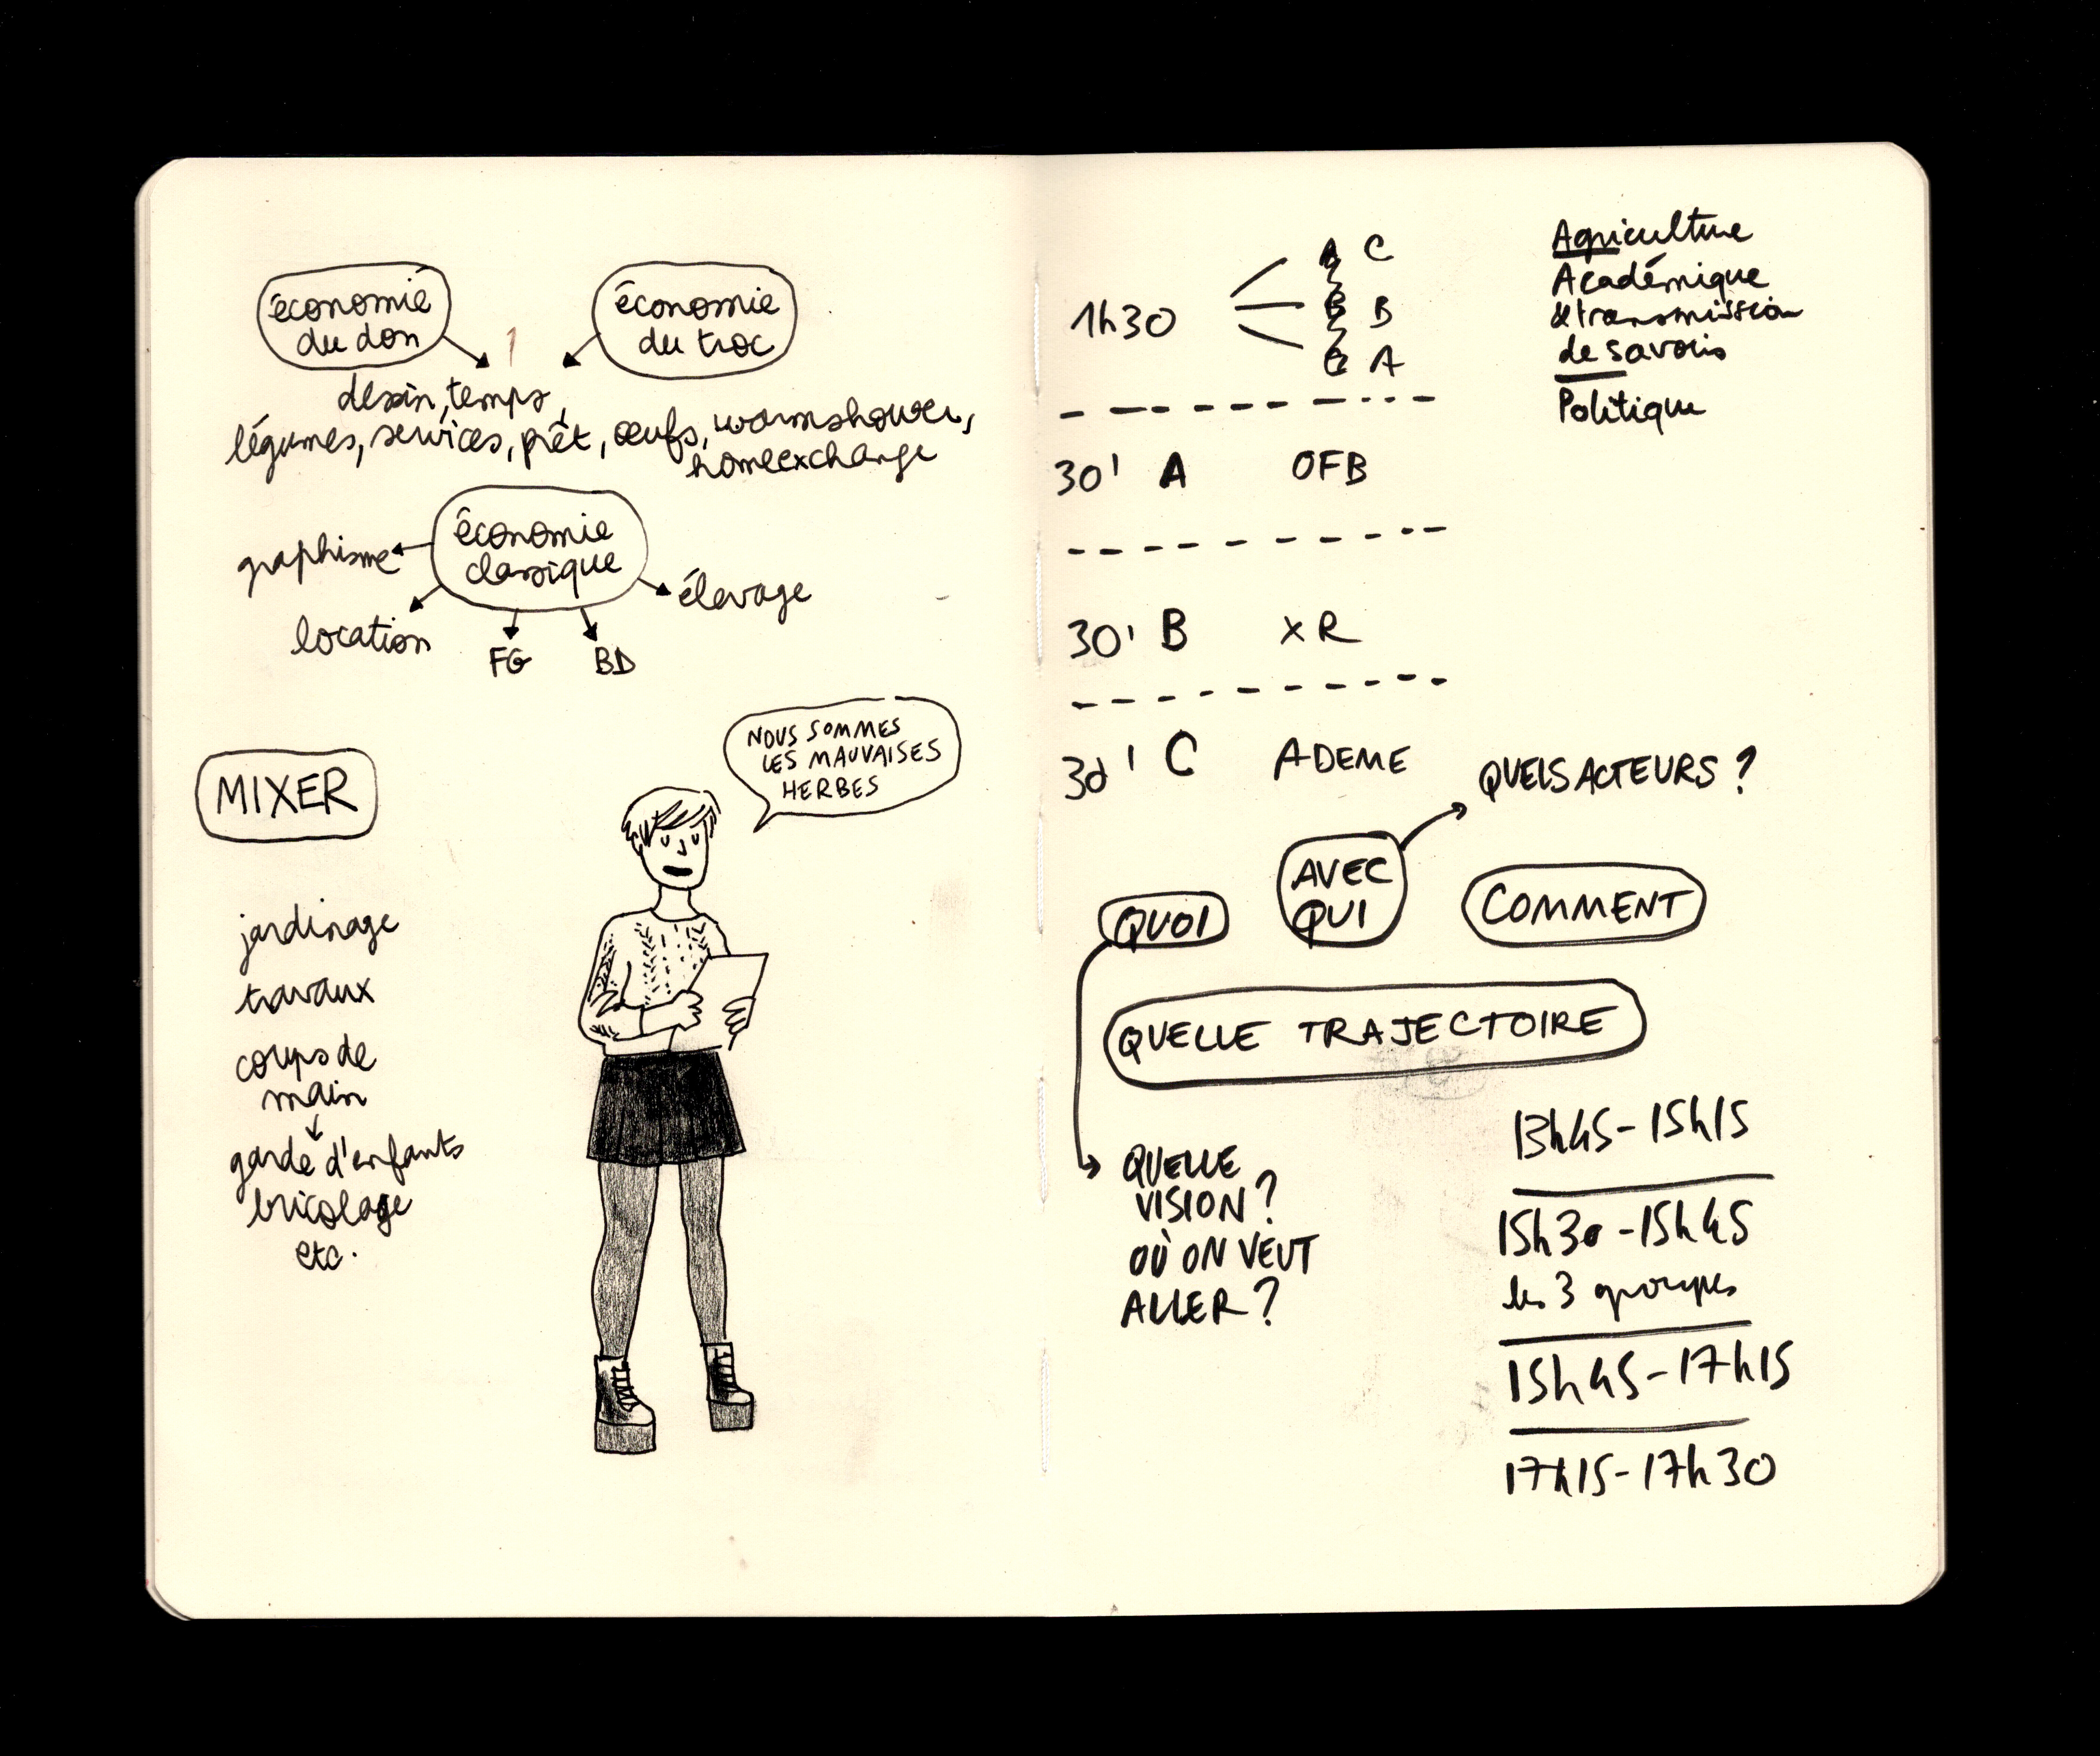 économie
du don
économie
du troc
dessin, temps,
légumes, services, prêt, œufs, warmshower,
homeexchange
économie
classique
graphisme
location
FG
BD
élevage
MIXER
jardinage
travaux
coups de
main
garde d'enfants
bricolage
etc.
NOUS SOMMES
LES MAUVAISES
HERBES
1h30
A C
B B
C A
Agriculture
Académique
& transmission
de savoirs
Politique
30' A OFB
30' B XR
30' C ADEME
QUELS ACTEURS ?
QUOI
AVEC
QUI
COMMENT
QUELLE TRAJECTOIRE
QUELLE
VISION ?
OÙ ON VEUT
ALLER ?
13h45 - 15h15
15h30 - 15h45
les 3 groupes
15h45 - 17h15
17h15 - 17h30